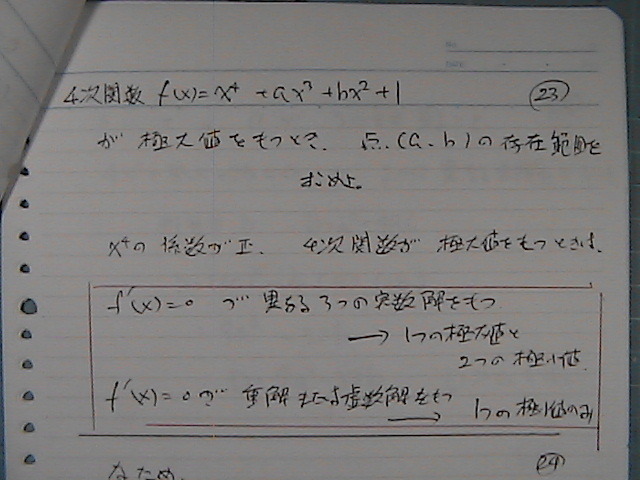 4次関数 f(x)=x⁴+ax³+bx²+1 (23)
が極大値をもつとき、点(a,b)の存在範囲を
求めよ。
x⁴の係数が正、4次関数が極大値をもつときは、
f'(x)=0が異なる3つの実数解をもつ
→ 1つの極大値と
2つの極小値
f'(x)=0が重解または虚数解をもつ
→ 1つの極小値のみ
なため、 (24)